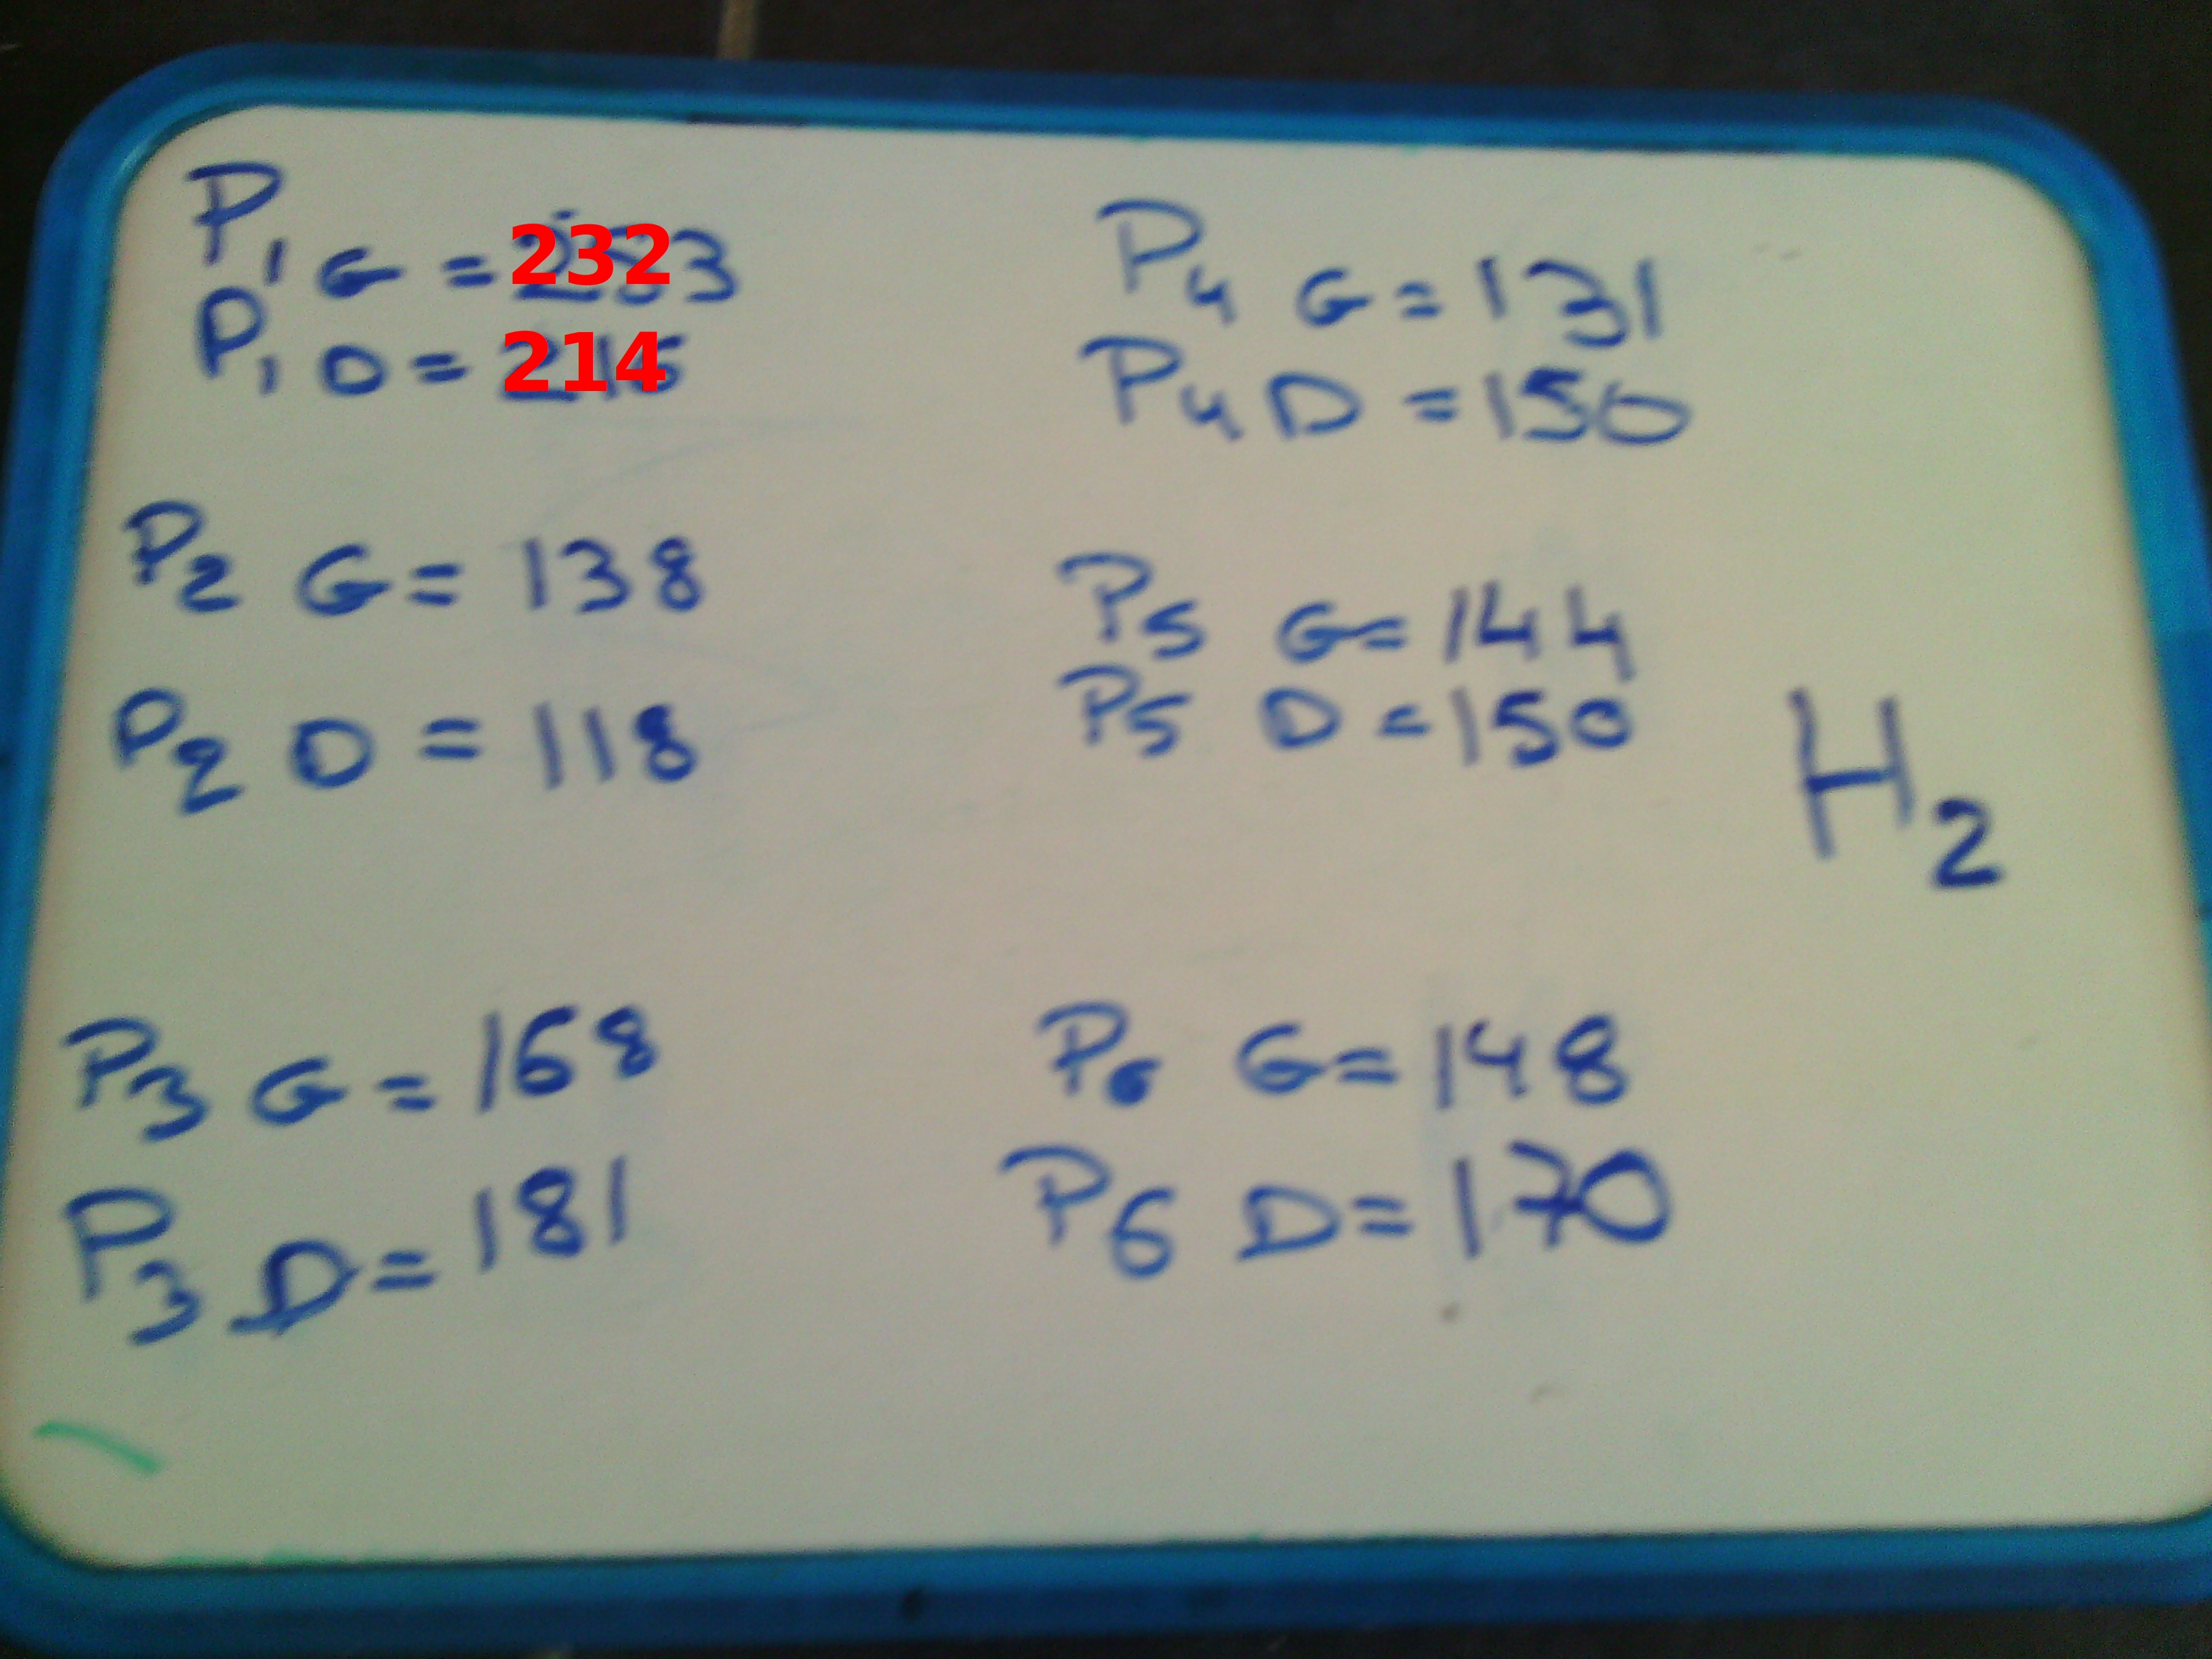 P1 G = 232
P1 D = 214
P2 G = 138
P2 D = 118
P3 G = 168
P3 D = 181
P4 G = 131
P4 D = 150
P5 G = 144
P5 D = 150
P6 G = 148
P6 D = 170
H2